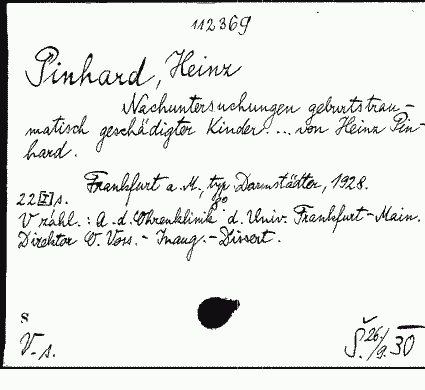 112369
Pinhard, Heinz
Nachuntersuchungen geburtstrau-
matisch geschädigter Kinder. ... von Heinz Pin-
hard.
Frankfurt a. M., typ. Darmstädter, 1928.
22[I]s. 8°
V záhl.: A. d. Ohrenklinik d. Univ. Frankfurt-Main.
Direktor O. Voss. - Inaug.-Dissert.
s
V.-s.
Š. 26/9. 30